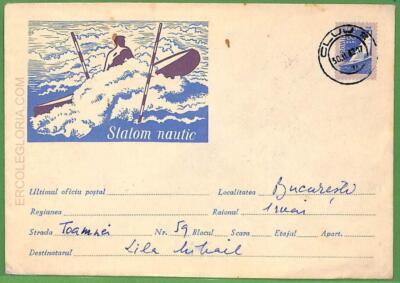 ERCOLEGLORIA.COM
CLUJ
Slalom nautic
Ultimul oficiu poștal Localitatea București
Regiunea Raionul
Strada Toamnei Nr. 59 Blocul Scara Etajul Apart.
Destinatarul Lila Mihail